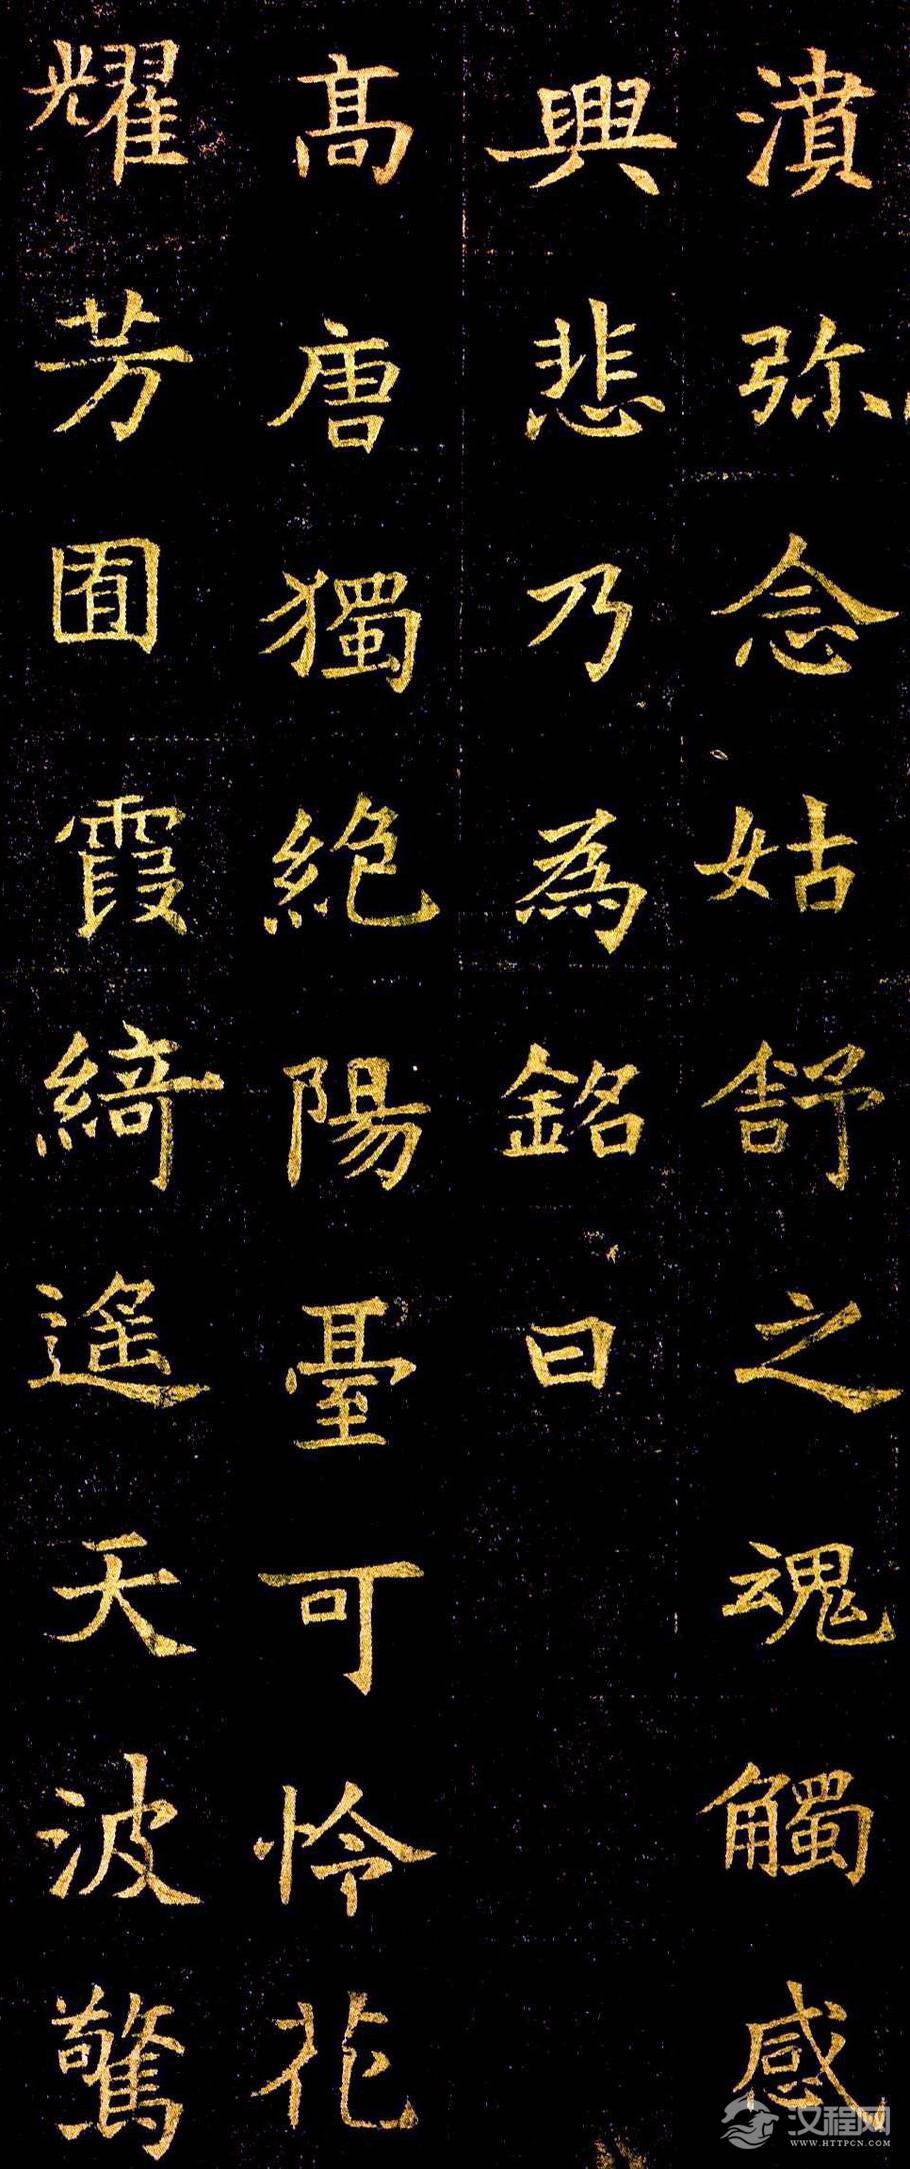 濆弥念姑舒之魂觸感
興悲乃為銘曰
高唐獨絶陽臺可怜花
耀芳囿霞綺遥天波驚
汉程网
WWW.HTTPCN.COM